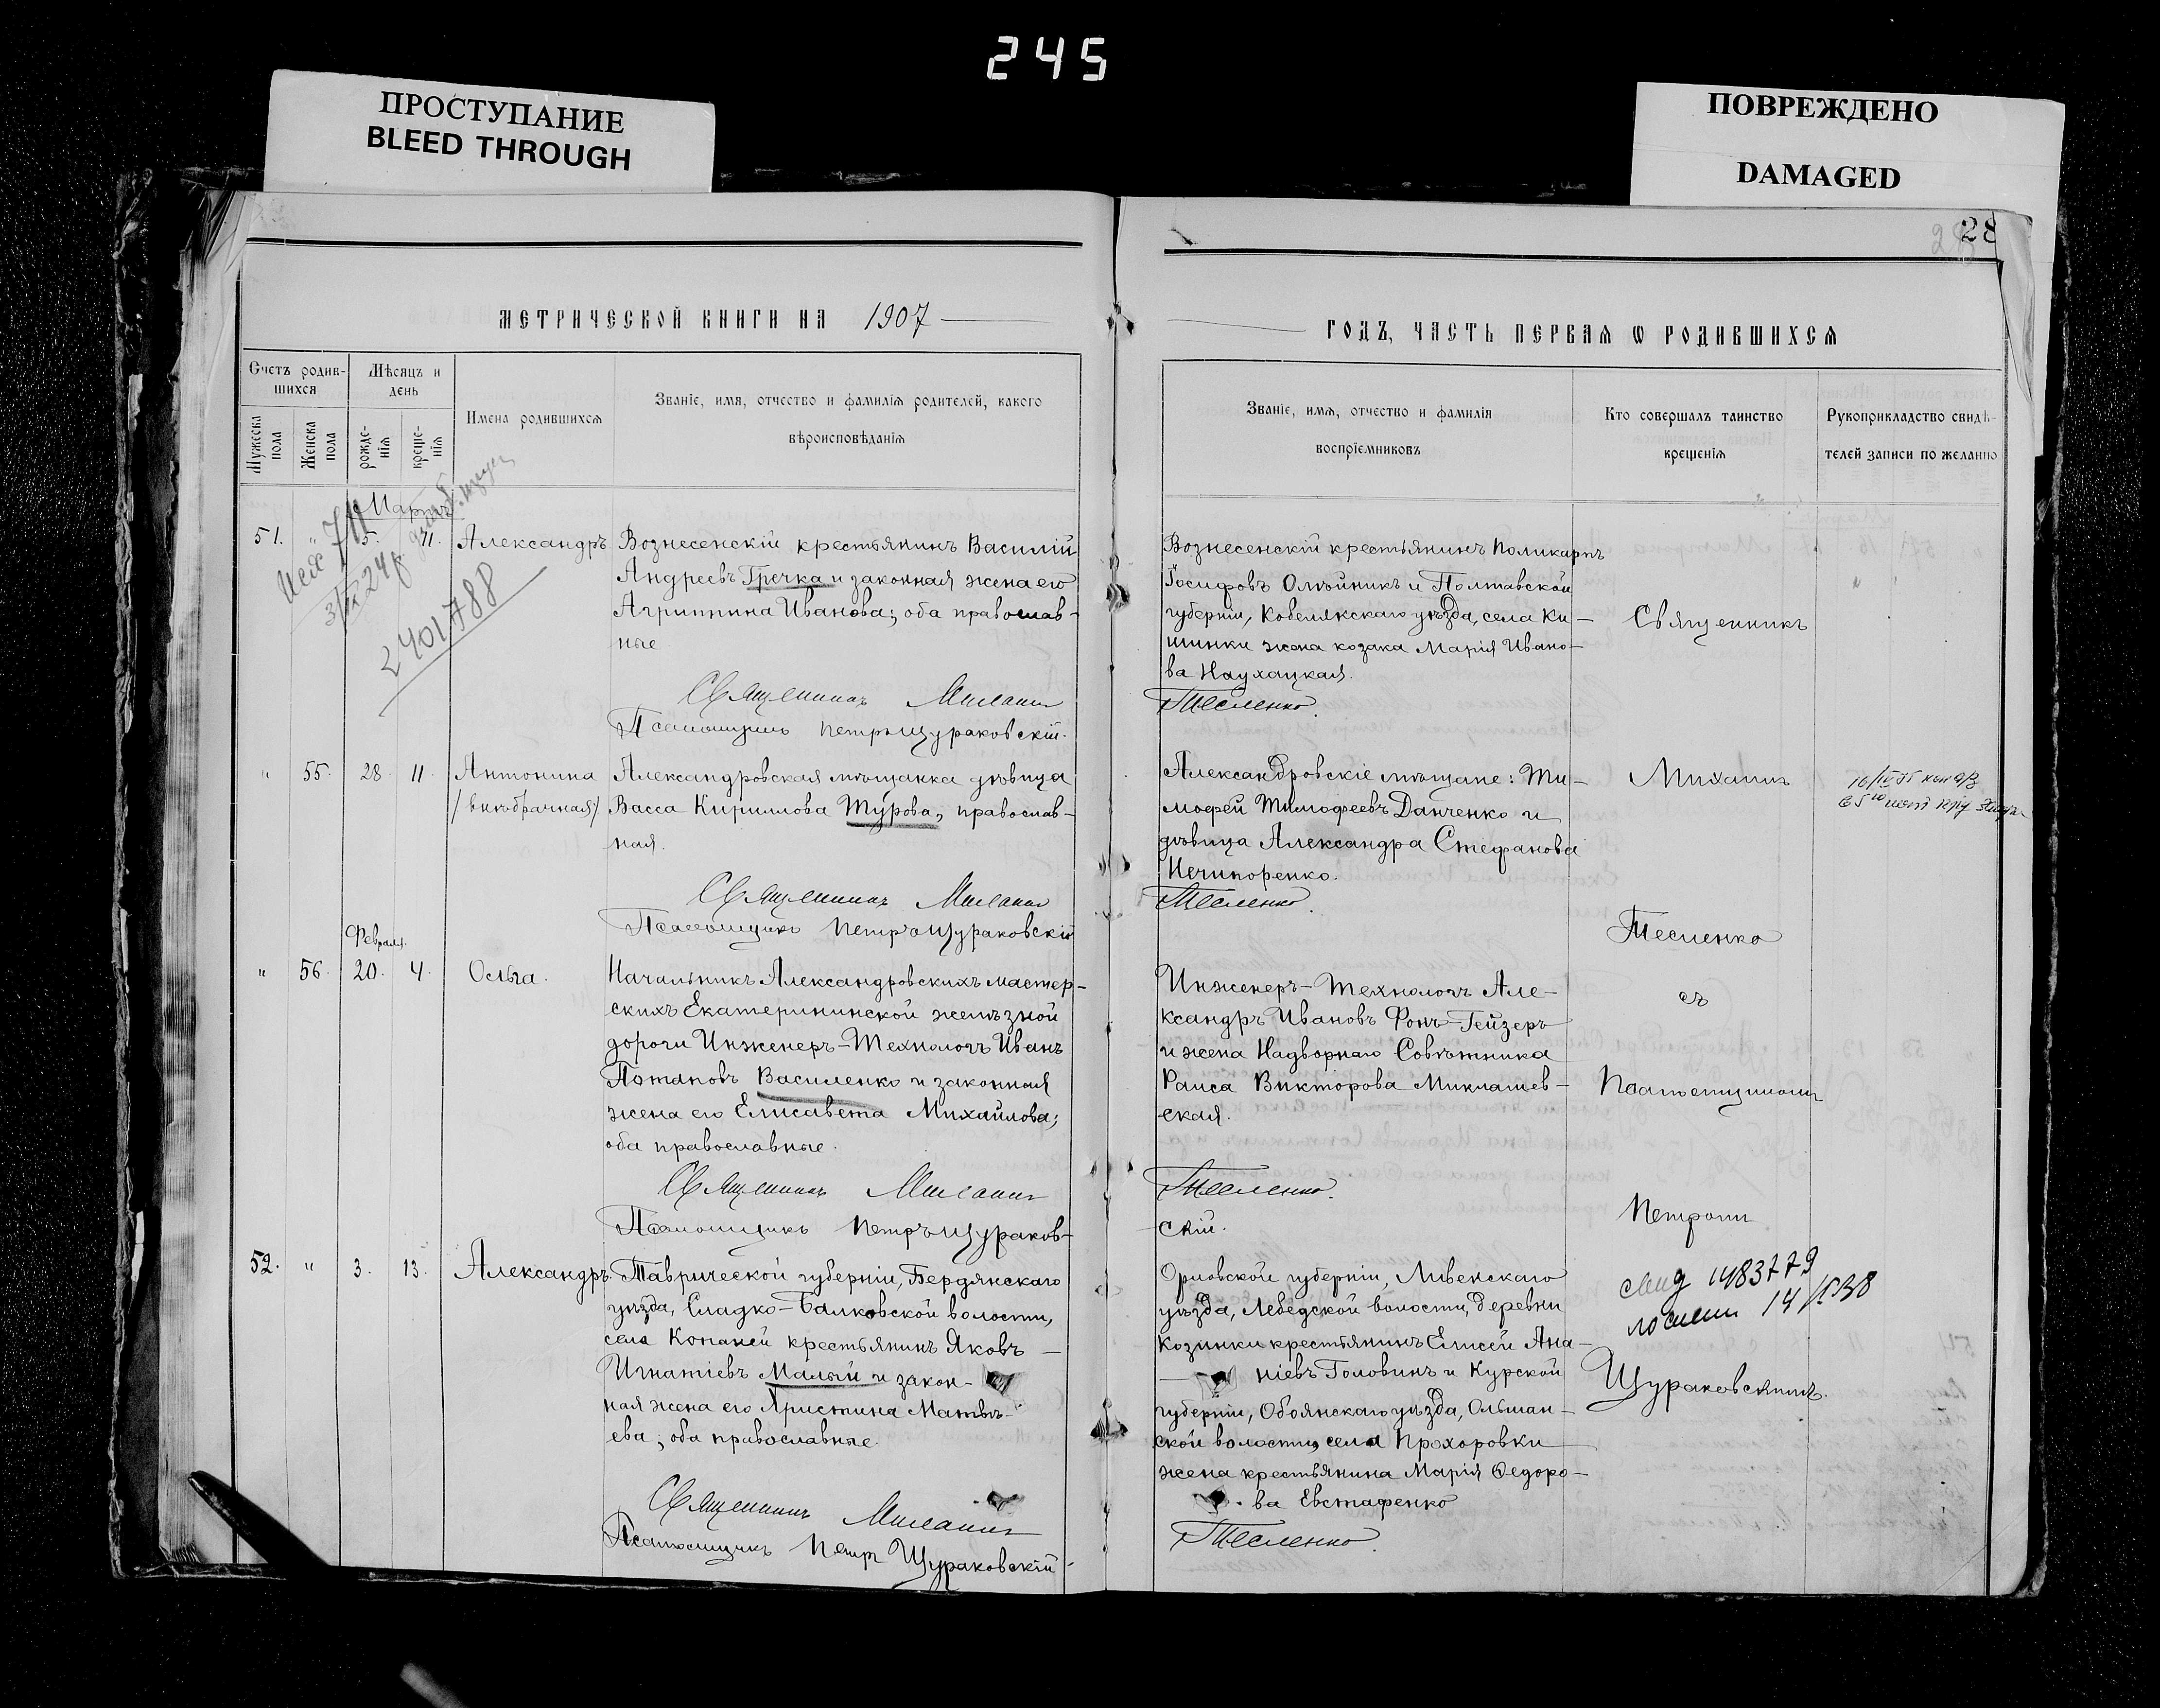 245
ПРОСТУПАНИЕ
BLEED THROUGH
ПОВРЕЖДЕНО
DAMAGED
28
МЕТРИЧЕСКОЙ КНИГИ НА 1907
ГОДЪ, ЧАСТЬ ПЕРВАЯ Ѡ РОДИВШИХСЯ
Счетъ родив-
шихся
Мѣсяцъ и
день
Мужеска
пола
Женска
пола
рожде-
нія
креще-
нія
Имена родившихся
Званіе, имя, отчество и фамилія родителей, какого
вѣроисповѣданія
Званіе, имя, отчество и фамилія
воспріемниковъ
Кто совершалъ таинство
крещенія
Рукоприкладство свидѣ-
телей записи по желанію
Мартъ
51. " 5. 11. Александръ
Вознесенскій крестьянинъ Василій
Андреевъ Гречка и законная жена его
Агриппина Иванова; оба православ-
ные
Священникъ Михаилъ
Псаломщикъ Петръ Щураковскій.
Вознесенскій крестьянинъ Поликарпъ
Іосифовъ Олѣйникъ и Полтавской
губерніи, Кобелякскаго уѣзда, села Ки-
шинки жена козака Марія Ивано-
ва Наухацкая.
Тесленко.
2401788
" 55. 28. 11. Антонина
/внѣбрачная/
Александровская мѣщанка дѣвица
Васса Кириллова Турова, православ-
ная.
Священникъ Михаилъ
Псаломщикъ Петръ Щураковскій
Александровскіе мѣщане: Ти-
мофей Тимофеевъ Данченко и
дѣвица Александра Стефанова
Нечипоренко.
Тесленко.
Февраля.
" 56. 20. 4. Ольга.
Начальникъ Александровскихъ мастер-
скихъ Екатерининской желѣзной
дороги Инженеръ-Технологъ Иванъ
Потаповъ Василенко и законная
жена его Елисавета Михайлова;
оба православные.
Священникъ Михаилъ
Псаломщикъ Петръ Щураков-
Инженеръ-Технологъ Але-
ксандръ Ивановъ Фонъ-Гейзеръ
и жена Надворнаго Совѣтника
Раиса Викторова Миклашев-
ская.
Тесленко.
скій.
52. " 3. 13. Александръ.
Таврической губерніи, Бердянскаго
уѣзда, Сладко-Балковской волости,
села Копаней крестьянинъ Яковъ
Игнатіевъ Малый и закон-
ная жена его Христина Матвѣ-
ева; оба православные.
Священникъ Михаилъ
Псаломщикъ Петръ Щураковскій
Орловской губерніи, Ливенскаго
уѣзда, Лебедской волости, деревни
Козинки крестьянинъ Елисей Ана-
ніевъ Головинъ и Курской
губерніи, Обоянскаго уѣзда, Ольшан-
ской волости, села Прохоровки
жена крестьянина Марія Ѳедоро-
ва Евстафенко
Тесленко.
Священникъ
Михаилъ
Тесленко
съ
Псаломщикомъ
Петромъ
1483779
Щураковскимъ.